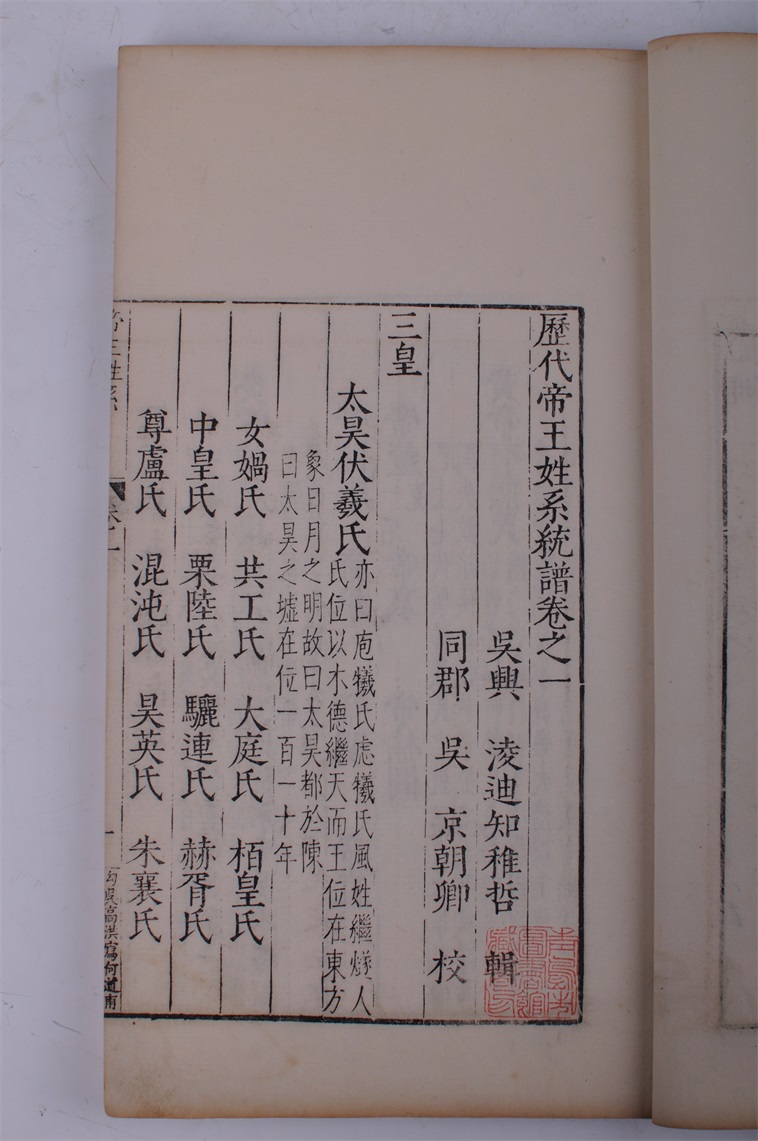 歷代帝王姓系統譜卷之一
吳興 淩迪知稚哲 輯
同郡 吳 京朝卿 校
三皇
太昊伏羲氏
亦曰庖犧氏虙犧氏風姓繼燧人
氏位以木德繼天而王位在東方
象日月之明故曰太昊都於陳
曰太昊之墟在位一百一十年
女媧氏 共工氏 大庭氏 栢皇氏
中皇氏 栗陸氏 驪連氏 赫胥氏
尊盧氏 混沌氏 昊英氏 朱襄氏
帝王姓系 卷一 一